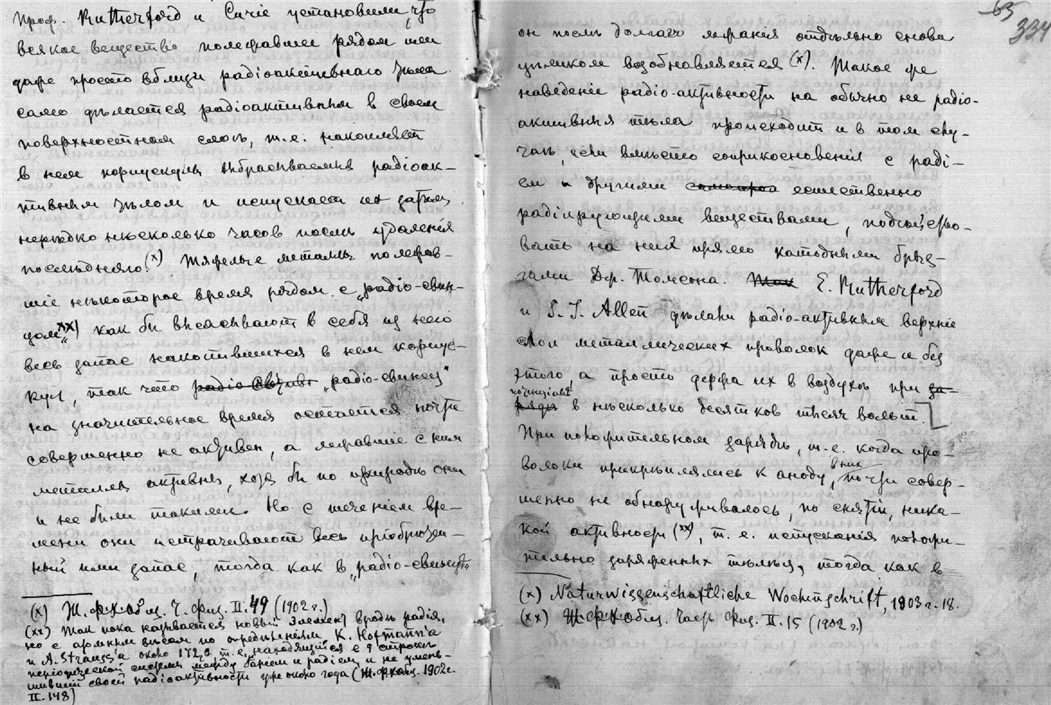 Проф. Rutherford и Curie установили, что
всякое вещество полежавшее рядом или
даже просто вблизи радіоактивнаго тѣла
само дѣлается радіоактивным в своем
поверхностном слоѣ, т.е. накопляет
в нем корпускулы выбрасываемыя радіоак-
тивным тѣлом и испускает их затѣм
нерѣдко нѣсколько часов послѣ удаленія
послѣдняго.(x) Тяжелые металлы полежав-
шіе нѣкоторое время рядом с „радіо-свин-
цом"(xx) как бы высасывают в себя из него
весь запас накопившихся в нем корпус-
кул, так что радіо-свинец"
на значительное время остается почти
совершенно не активен, а лежавшие с ним
металлы активны, хотя бы по природѣ они
и не были такими. Но с теченіем вре-
мени они истрачивают весь пріобрѣтен-
ный ими запас, тогда как в „радіо-свинцѣ"
(x) Ж. Ф. Ч. Физ. II. 49 (1902 г.)
(xx) Так пока называется новый элемент вродѣ радія,
но с атомным вѣсом по опредѣленіям K. Hofmann'a
и A. Strauss'a около 172, т.е. находящійся в 9 строкѣ
періодической системы между баріем и радіем и не умень-
шившій своей радіоактивности уже около года (Ж. 1902 г.
II-148)
65
334
он послѣ долгаго лежания отдѣльно снова
цѣликом возобновляется (x). Такое же
наведеніе радіо-активности на обычно не радіо-
активныя тѣла происходит и в том слу-
чаѣ, если вмѣсто соприкосновенія с раді-
ем и другими естественно
радіирующими веществами,
вать на них прямо катодными брыз-
гами Дж. Томсона. E. Rutherford
и S. J. Allen дѣлали радіо-активными верхніе
слои металлических проволок даже и без
этого а просто держа их в воздухѣ при
потенціалѣ в нѣсколько десятков тысяч вольт
При положительном зарядѣ, т.е. когда про-
волоки прикрѣплялись к аноду, в них почти совер-
шенно не обнаруживалось, по снятіи, ника-
кой активности (xx), т.е. испусканія положи-
тельно заряженных тѣлец, тогда как в
(x) Naturwissenschaftliche Wochenschrift, 1903 г. 18.
(xx) Ж. Ф. Часть Физ. II. 15 (1902 г.)